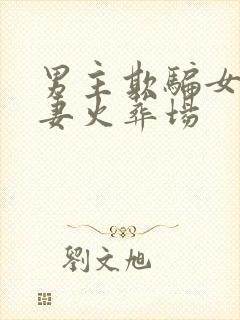 男主欺騙女
妻火葬場
劉文旭